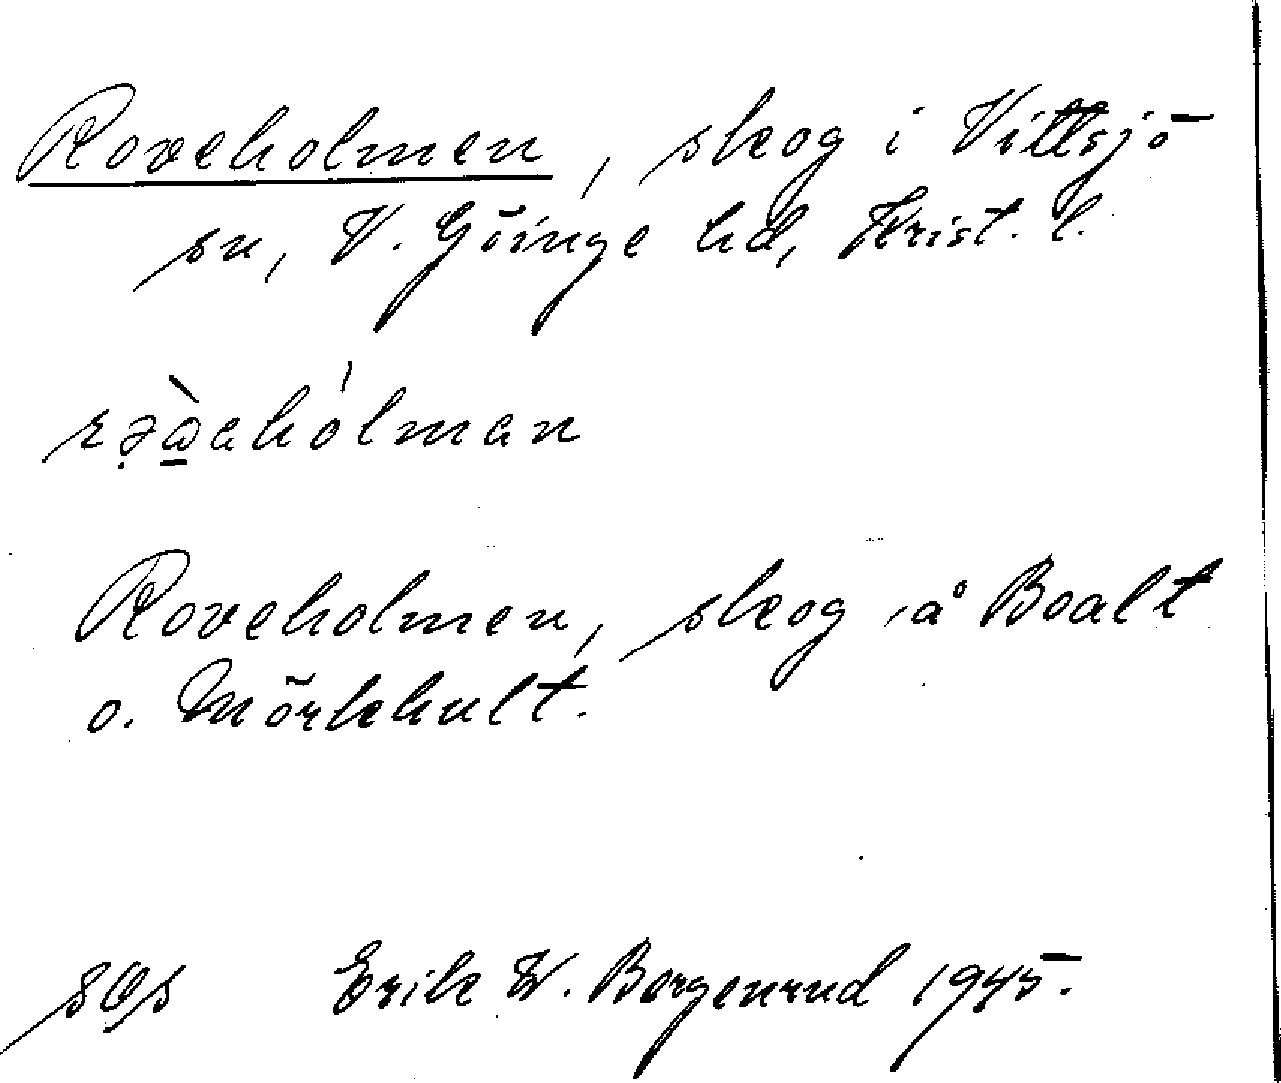 Roveholmen, skog i Vittsjö
sn, V. Göinge hd, Krist. l.
Roveholmen, skog å Boalt
o. Mörkhult.
Erik W. Bergenrud 1945.